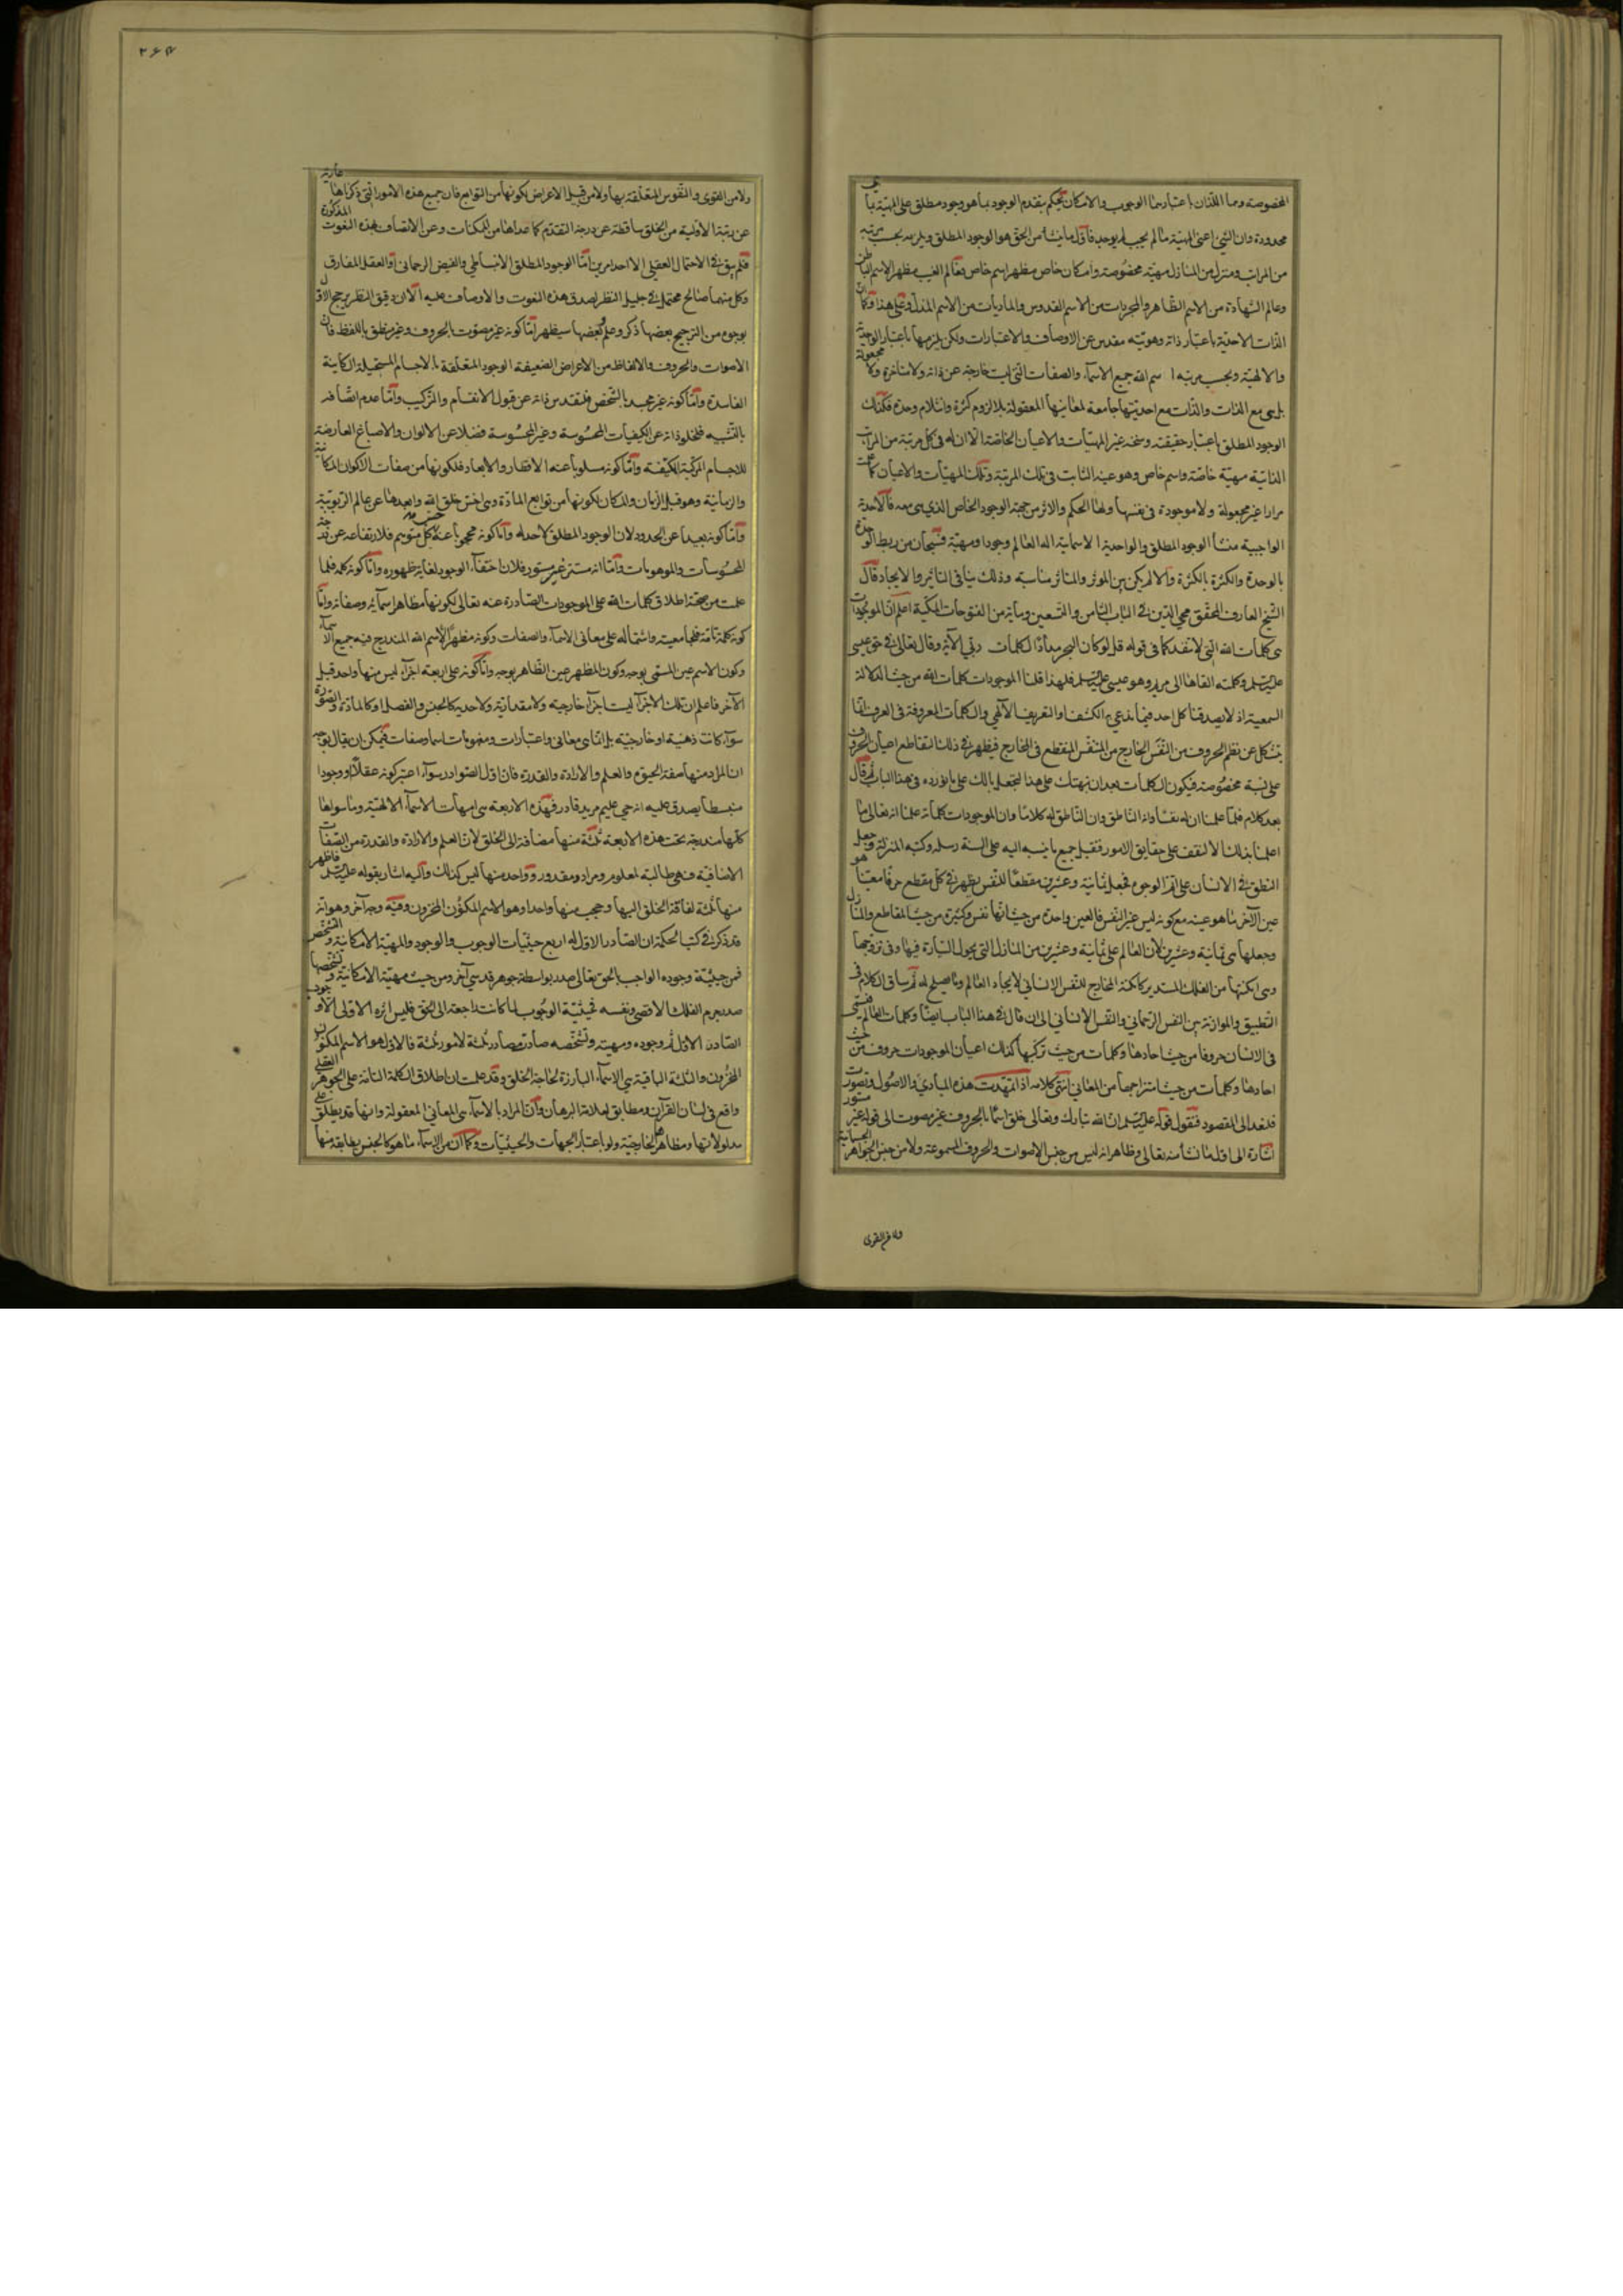 المخصوصة وما اللذان باعتبارهما الوجوب والامكان يحكم بتقدم الوجود بما هو وجود مطلق على المهية بما هى
محدودة وان الشئ اعنى المهية ما لم يجب لم يوجد فاول ما ينشأ من الحق هو الوجود المطلق ويلزمه بحسب مرتبة
من المراتب ومنزل من المنازل مهية مخصوصة وامكان خاص مظهر اسم خاص بعالم الغيب مظهر الاسم الباطن
وعالم الشهادة من الاسم الظاهر والمجردات من الاسم القدوس والماديات من الاسم المذل وعلى هذا وكما ان
الذات الاحدية باعتبار ذاته وهويته مقدس عن الاوصاف والاعتبارات ولكن يلزمها باعتبار الواحدية
والالهية وبحسب مرتبة اسم الله جميع الاسماء والصفات التى ليست خارجة عن ذاته ولا متاخرة ولا مجعولة
بل هى مع الذات والذات مع احديتها جامعة لمعانيها المعقولة بلا لزوم كثرة وانثلام وحدة فكذلك
الوجود المطلق باعتبار حقيقته وسنخه غير المهيات والاعيان الخاصة الا ان له فى كل مرتبة من المراتب
الذاتية مهية خاصة واسم خاص وهو عينه الثابت فى تلك المرتبة وتلك المهيات والاعيان كما علمت
مرارا غير مجعولة ولا موجودة فى نفسها ولها الحكم والاثر من جهة الوجود الخاص الذى هى معه فالاحدية
الواجبية منشأ الوجود المطلق والواحدية الاسمائية اله العالم وجودا ومهية فسبحان من ربط الوحدة
بالوحدة والكثرة بالكثرة والا لم يكن بين الموثر والمتاثر مناسبة وذلك ينافى التاثير والايجاد قال
الشيخ العارف المحقق محيى الدين فى الباب الثامن والتسعين وماية من الفتوحات المكية اعلم ان الموجودات
هى كلمات الله التى لا تنفد كما فى قوله قل لو كان البحر مدادا لكلمات ربى الآية وقال تعالى فى حق عيسى
عليه السلم وكلمته القاها الى مريم وهو عيسى عليه السلم فلهذا قلنا الموجودات كلمات الله من حيث الدلالة
السمعية اذ لا يصدقنا كل احد فيما ندعى به الكشف او التعريف الالهى والكلمات المعروفة فى العرف انما
يتشكل عن نظم الحروف من النفس الخارج من المتنفس المنقطع فى المخارج فيظهر فى ذلك التقاطع اعيان الحروف
على نسبة مخصوصة فيكون الكلمات وبعد ان نبهتك على هذا لتجعل بالك على ما نورده فى هذا الباب ثم قال
بعد كلام فلما علمنا ان له نفسا وانه الناطق وان الناطق له كلاما وان الموجودات كلماته علمنا انه تعالى ما
اعلمنا بذلك الا لنقف على حقايق الامور فنقبل جميع ما ينسبه اليه على السنة رسله وكتبه المنزلة وجعل
النطق فى الانسان على اتم الوجوه فجعل ثمانية وعشرين مقطعا للنفس يظهر فى كل مقطع حرفا معينا هو
عين الآخر ما هو عينه مع كونه ليس غير النفس فالعين واحدة من حيث انها نفس وكثيرة من حيث المقاطع والمنازل
وجعلها هى ثمانية وعشرين لان العالم على ثمانية وعشرين من المنازل التى يجول السيارة فيها وفى بروجها
وهى امكنتها من الفلك المستدير كامكنة المخارج للنفس الانسانى لايجاد العالم وما يصلح له ثم ساق الكلام فى
التطبيق والموازنة بين النفس الرحمانى والنفس الانسانى الى ان قال فى هذا الباب ايضا وكلمات العالم فتسمى
فى الانسان حروفا من حيث احادها وكلمات من حيث تركبها كذلك اعيان الموجودات حروف من حيث
احادها وكلمات من حيث امتزاجها من المعانى انتهى كلامه اذا تمهدت هذه المبادى والاصول وتصورت
فلنعد الى المقصود فنقول قوله عليه السلم ان الله تبارك وتعالى خلق اسما بالحروف غير مصوت الى قوله غير مستور
اشارة الى اول ما نشأ منه تعالى وظاهر انه ليس من جنس الاصوات والحروف المسموعة ولا من جنس الجواهر الجسمانية
ولا من القوى
٢٦٧
ولا من القوى والنفوس المتعلقة بها ولا من قبيل الاعراض لكونها من التوابع فان جميع هذه الامور التى ذكرناها عارية
عن رتبة الاولية من الخلق ساقطة عن درجة التقدم كما عداها من الممكنات وعن الاتصاف بهذه النعوت المذكورة
فلم يبق فى الاحتمال العقلى الا احد امرين اما الوجود المطلق الانبساطى والفيض الرحمانى او العقل المفارق
وكل منهما صالح محتمل فى جليل النظر لصدق هذه النعوت والاوصاف عليه الا ان دقيق النظر يرجح الاول
بوجوه من الترجيح بعضها ذكر وعلم وبعضها سيظهر اما كونه غير مصوت بالحروف وغير منطق باللفظ فان
الاصوات والحروف والالفاظ من الاعراض الضعيفة الوجود المتعلقة بالاجسام المستحيلة الكاينة
الفاسدة واما كونه غير مجسد بالشخص فلتقدس ذاته عن قبول الانقسام والتركيب واما عدم اتصافه
بالتشبيه فلخلو ذاته عن الكيفيات المحسوسة وغير المحسوسة فضلا عن الالوان والاصباغ العارضة
للاجسام المركبة الكثيفة واما كونه مسلوبا عنه الاقطار والابعاد فلكونها من صفات الاكوان المكانية
والزمانية وهو قبل الزمان والمكان لكونها من توابع المادة وهى اخس خلق الله وابعدها عن عالم الربوبية
واما كونه بعيدا عن الحدود لان الوجود المطلق لا حد له واما كونه محجوبا عنه حس كل متوهم فلارتفاعه عن درجة
المحسوسات والموهومات واما انه مستتر غير مستور فلان اختفاء الوجود لغاية ظهوره واما كونه كلمة فلما
علمت من صحة اطلاق كلمات الله على الموجودات الصادرة عنه تعالى لكونها مظاهر اسمائه وصفاته واما
كونه كلمة تامة فلجامعيته واشتماله على معانى الاسماء والصفات وكونه مظهرا لاسم الله المندرج فيه جميع الاسماء
وكون الاسم عين المسمى بوجه وكون المظهر عين الظاهر بوجه واما كونه على اربعة اجزاء ليس منها واحد قبل
الآخر فاعلم ان تلك الاجزاء ليست اجزاء خارجية ولا مقدارية ولا حدية كالجنس والفصل او كالمادة والصورة
سواء كانت ذهنية او خارجية بل انما هى معانى واعتبارات ومفهومات اسما وصفات فيمكن ان يقال بوجه
ان المراد منها صفة الحيوة والعلم والارادة والقدرة فان اول الصوادر سواء اعتبر كونه عقلا او وجودا
منبسطا يصدق عليه انه حى عليم مريد قادر فهذه الاربعة هى امهات الاسماء الالهية وما سواها
كلها مندرجة تحت هذه الاربعة ثلثة منها مضافة الى الخلق لان العلم والارادة والقدرة من الصفات
الاضافية فهى طالبة لمعلوم ومراد ومقدور وواحد منها ليس كذلك واليه اشار بقوله عليه السلم فاظهر
منها ثلثة لفاقة الخلق اليها وحجب منها واحدا وهو الاسم المكنون المخزون وفيه وجه آخر وهو انه
قد ذكر فى كتب الحكمة ان الصادر الاول له اربع حيثيات الوجوب والوجود والمهية الامكانية والتشخص
فمن حيثية وجوده الواجب بالحق تعالى صدر بواسطة جوهر قدسى آخر ومن حيث مهية الامكانية وتشخصها
صدر جرم الفلك الاقصى ونفسه فحيثية الوجوب لما كانت راجعة الى الحق فليس اثره الاولى الا وجود
الصادر الاول ثم وجوده ومهيته وتشخصه صادرة مصادر ثلثة لامور ثلثة فالاول هو الاسم المكنون
المخزون والثلثة الباقية هى الاسماء البارزة لحاجة الخلق وقد علمت ان اطلاق الكلمة التامة على الجوهر العقلى
واقع فى لسان القرآن ومطابق لدلالة البرهان وان المراد بالاسماء هى المعانى المعقولة وانها قد يطلق على
مدلولاتها ومظاهرها الخارجية ولو باعتبار الجهات والحيثيات وكما ان من الاسماء ما هو كالجنس يطابقه منها